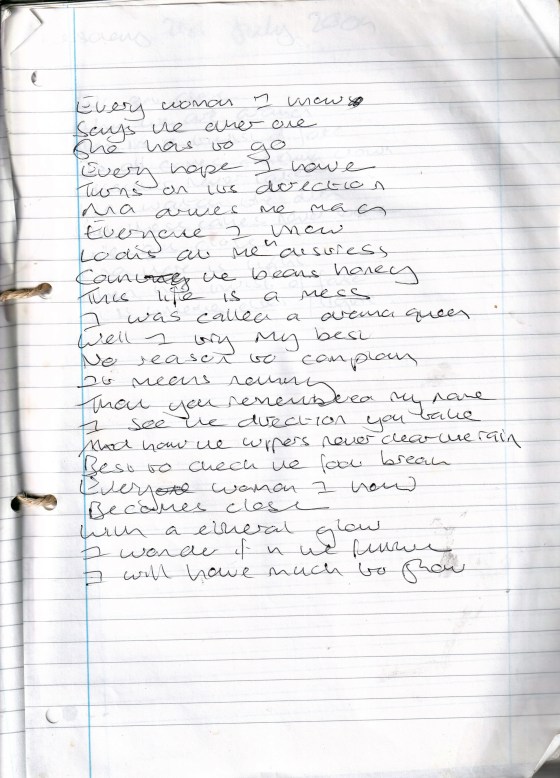 Every woman I know
Says the
She has to go
Every hope I have
Turns on its direction
And drives me mad
Everyone I know
Looks at me in distress
Counting the beans honey
This life is a mess
I was called a drama queen
Well I try my best
No reason to complain
It means nothing
That you remembered my name
I see the direction you take
And how the wippers never clear the rain
Best to check the foot break
Every woman I know
Becomes close
With a etheral glow
I wonder if in the future
I will have much to show